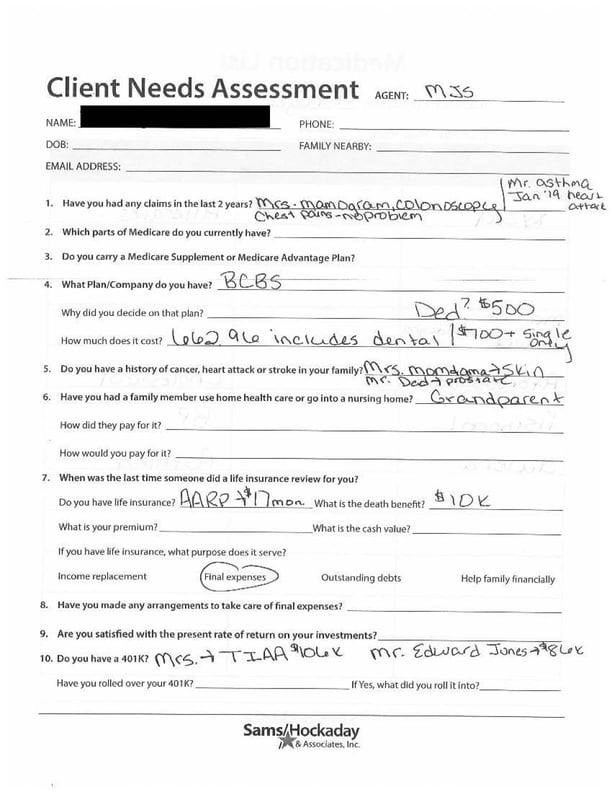 Client Needs Assessment AGENT: MJS
NAME: PHONE:
DOB: FAMILY NEARBY:
EMAIL ADDRESS:
Mr. asthma
Jan '19 heart
attack
1. Have you had any claims in the last 2 years? Mrs. mamogram, colonoscopy
Chest pains - no problem
2. Which parts of Medicare do you currently have?
3. Do you carry a Medicare Supplement or Medicare Advantage Plan?
4. What Plan/Company do you have? BCBS
Why did you decide on that plan? Ded? $500
How much does it cost? 662.96 includes dental $700+ single
only
5. Do you have a history of cancer, heart attack or stroke in your family? Mrs. mom + gma → skin
Mr. Dad → prostate
6. Have you had a family member use home health care or go into a nursing home? Grandparent
How did they pay for it?
How would you pay for it?
7. When was the last time someone did a life insurance review for you?
Do you have life insurance? AARP → $17 mon. What is the death benefit? $10K
What is your premium? What is the cash value?
If you have life insurance, what purpose does it serve?
Income replacement Final expenses Outstanding debts Help family financially
8. Have you made any arrangements to take care of final expenses?
9. Are you satisfied with the present rate of return on your investments?
10. Do you have a 401K? Mrs. → TIAA $106K Mr. Edward Jones → $86K
Have you rolled over your 401K? If Yes, what did you roll it into?
Sams/Hockaday
& Associates, Inc.